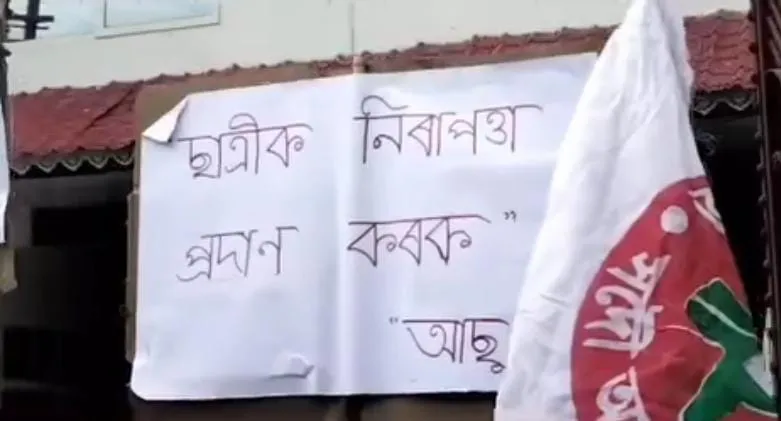 ছাত্ৰীক নিৰাপত্তা
প্ৰদাণ কৰক"
"আছু
সদৌ অ